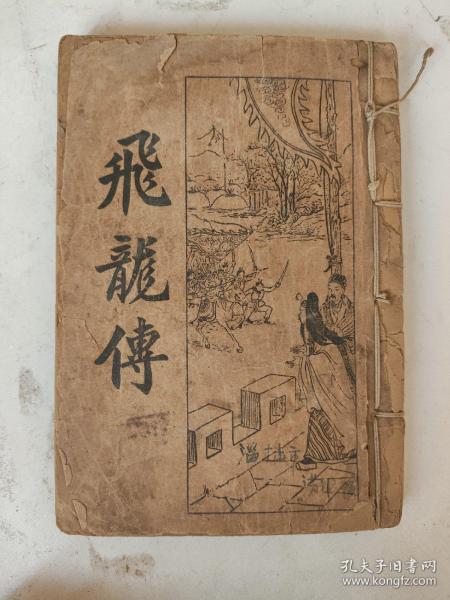 飛龍傳
孔夫子旧书网
www.kongfz.com